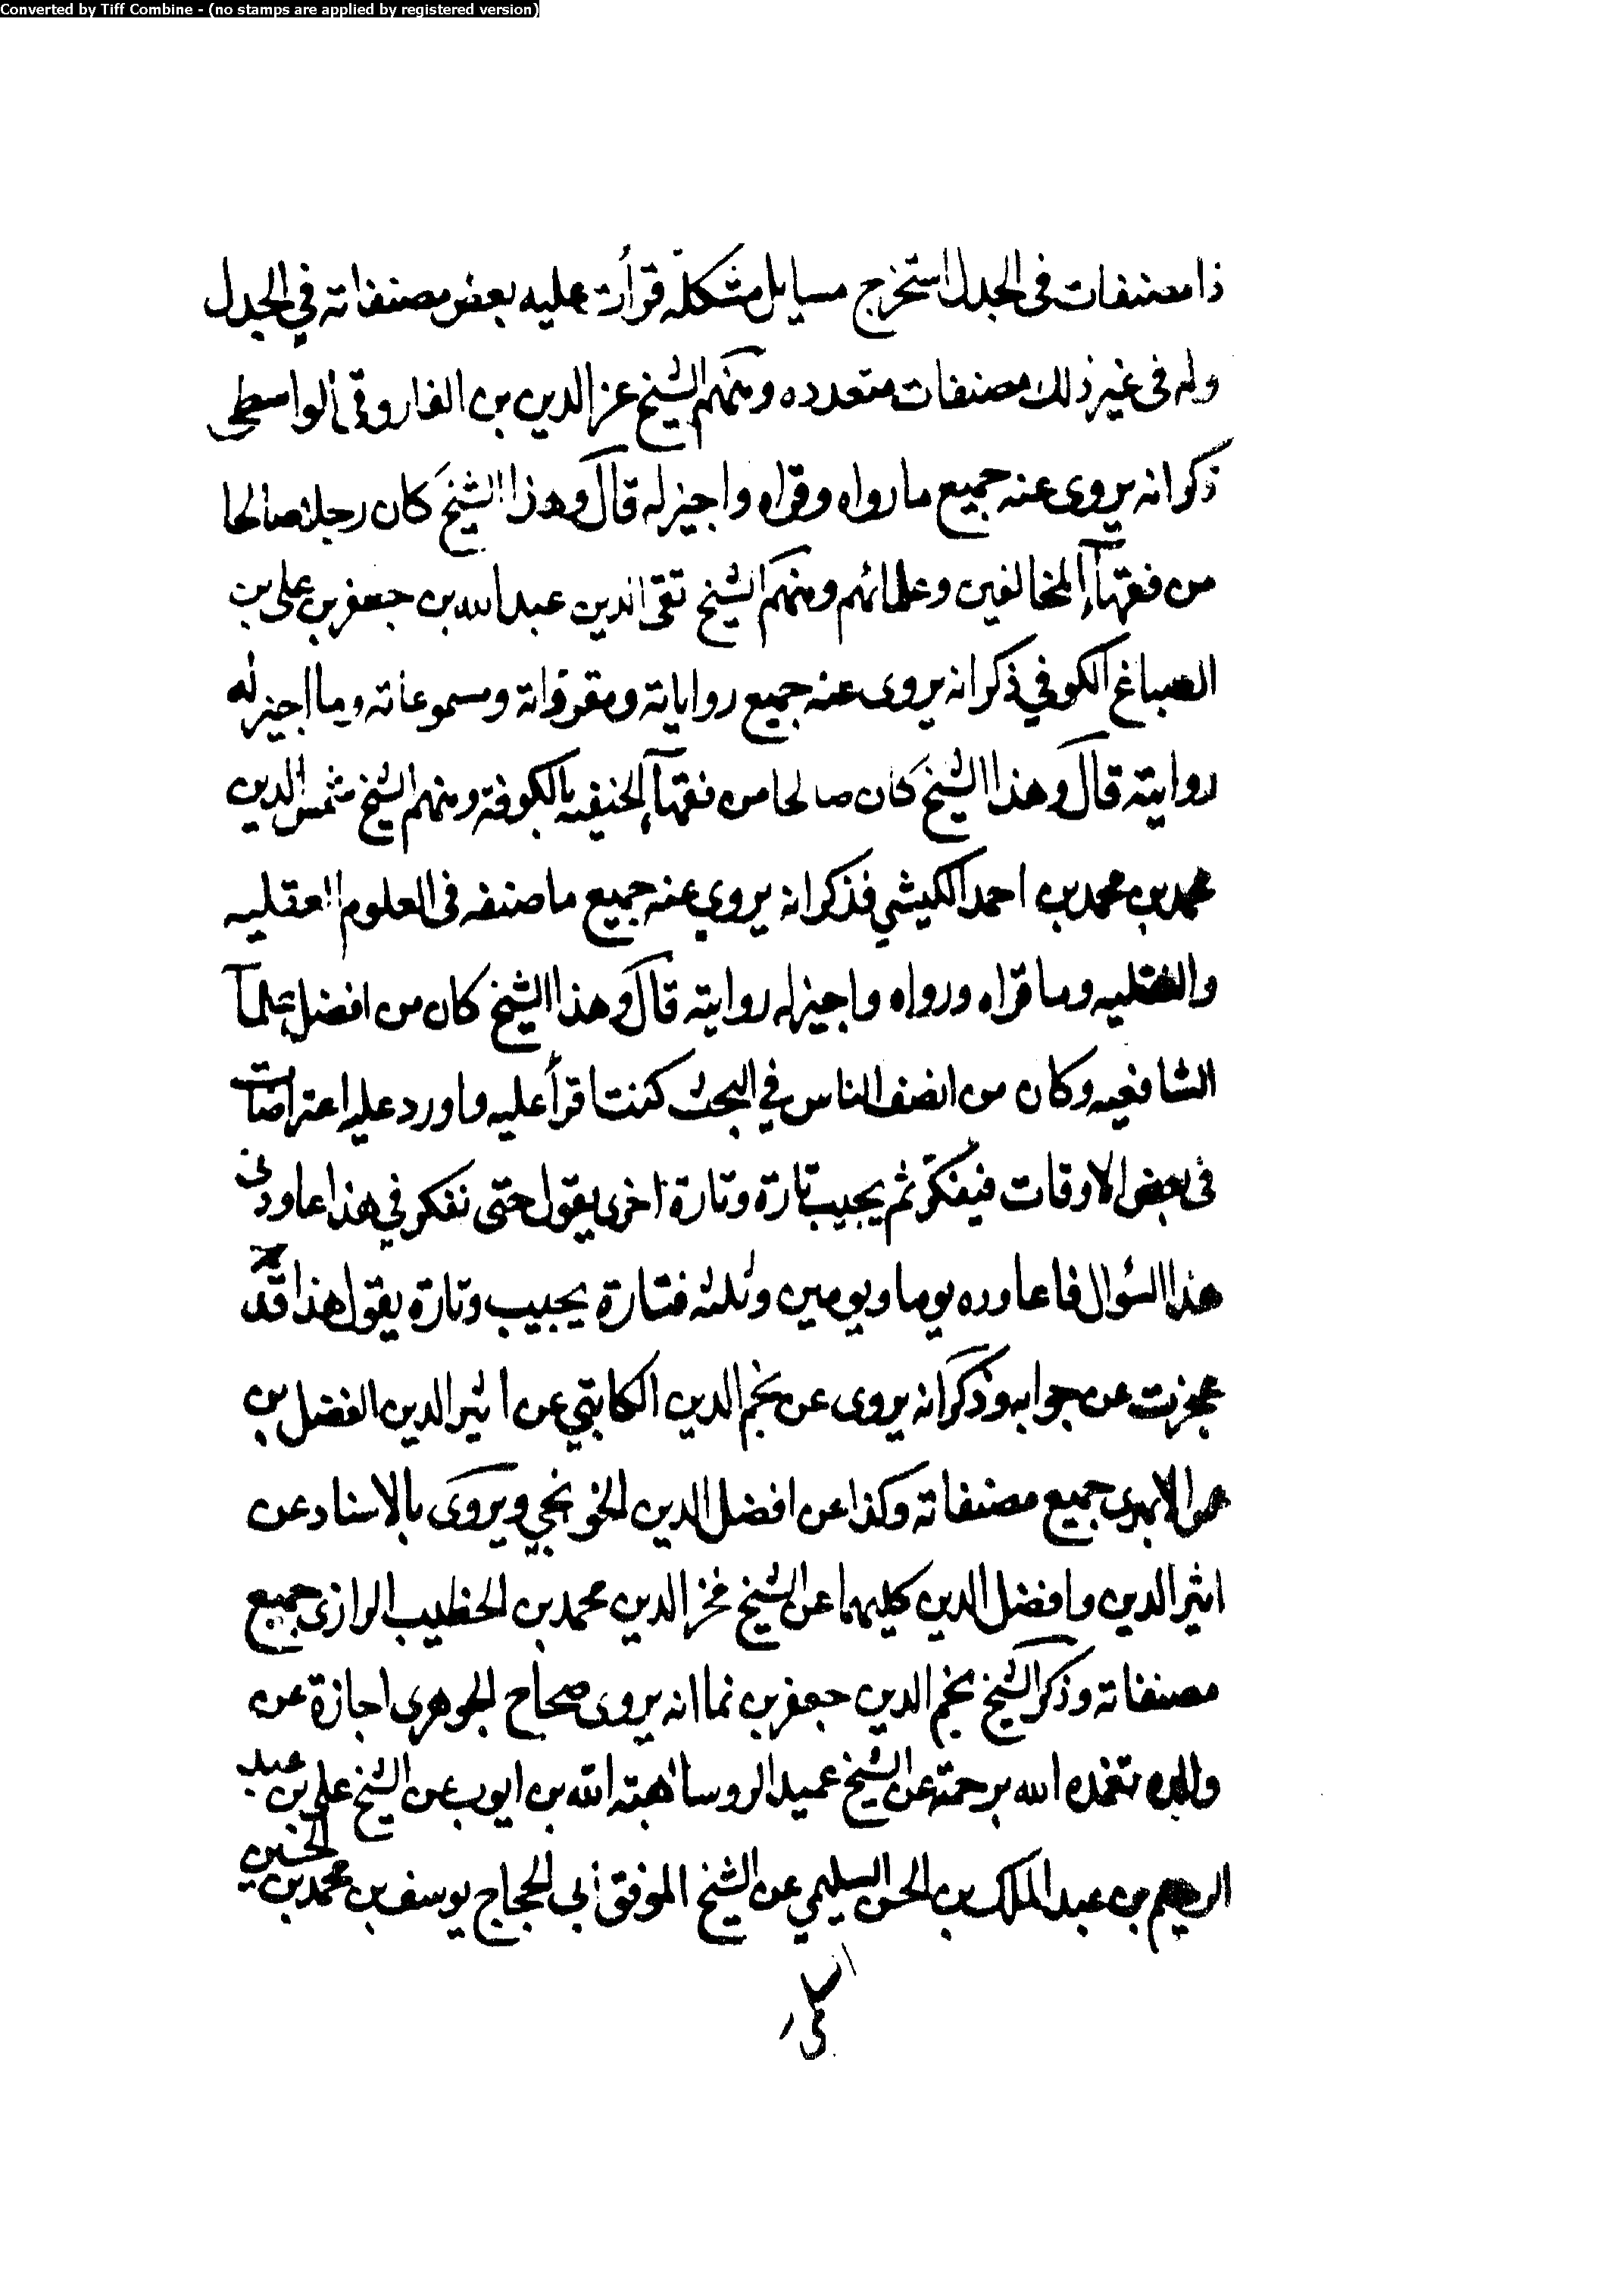 Converted by Tiff Combine - (no stamps are applied by registered version)
ذا مصنفات فى الجدل استخرج مسايل مشكلة قرأت عليه بعض مصنفاته في الجدل
وله فى غير ذلك مصنفات متعدده ومنهم الشيخ عز الدين بن الفاروقي الواسطى
ذكر انه يروى عنه جميع ما رواه وقراه واجيز له قال وهذا الشيخ كان رجلا صالحا
من فقهآء المخالفين وعلمائهم ومنهم الشيخ تقى الدين عبد الله بن جعفر بن على بن
الصباغ الكوفي ذكر انه يروى عنه جميع رواياته ومقرواته ومسموعاته وما اجيز له
روايته قال وهذا الشيخ كان صالحا من فقهآء الحنفيه بالكوفة ومنهم الشيخ شمس الدين
محمد بن محمد بن احمد الكيشي فذكر انه يروي عنه جميع ما صنفه فى العلوم العقليه
والنقليه وما قراه ورواه واجيز له روايته قال وهذا الشيخ كان من افضل علمآ
الشافعيه وكان من انصف الناس في البحث كنت اقرأ عليه واورد عليه اعتراضات
فى بعض الاوقات فيفكر ثم يجيب تارة وتارة اخرى يقول حتى نفكر في هذا عاودنى
هذا السؤال فاعاوده يوما ويومين وثلثه فتارة يجيب وتارة يقول هذا قد
عجزت عن جوابه وذكر انه يروى عن نجم الدين الكاتبي عن اثير الدين الفضل بن
عمر الابهرى جميع مصنفاته وكذا عن افضل الدين الخونجي ويروى بالاسناد عن
اثير الدين وافضل الدين كليهما عن الشيخ فخر الدين محمد بن الخطيب الرازى جميع
مصنفاته وذكر الشيخ نجم الدين جعفر بن نما انه يروى صحاح الجوهرى اجازة عن
والده تغمده الله برحمته عن الشيخ عميد الروسا هبة الله بن ايوب عن الشيخ على بن عبد
الرحيم بن عبد الملك بن الحسن السليمي عن الشيخ الموفق ابى الحجاج يوسف بن محمد بن الحسين